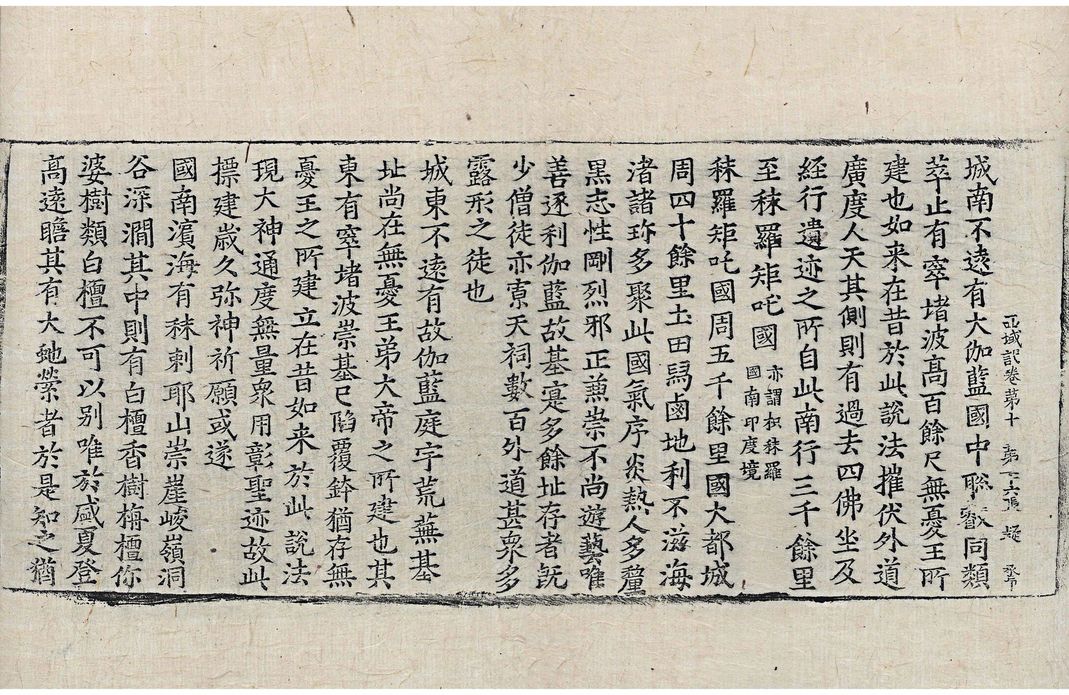 西域記卷第十 第十六張 疑
城南不遠有大伽藍國中聦叡同類
萃止有窣堵波高百餘尺無憂王所
建也如来在昔於此說法摧伏外道
廣度人天其側則有過去四佛坐及
經行遺迹之所自此南行三千餘里
至秣羅矩吒國 亦謂枳秣羅
國南印度境
秣羅矩吒國周五千餘里國大都城
周四十餘里土田舄鹵地利不滋海
渚諸珎多聚此國氣序炎熱人多黧
黒志性剛烈邪正兼崇不尚遊藝唯
善逐利伽藍故基寔多餘址存者旣
少僧徒亦寡天祠數百外道甚衆多
露形之徒也
城東不遠有故伽藍庭宇荒蕪基
址尚在無憂王弟大帝之所建也其
東有窣堵波崇基已陷覆鉢猶存無
憂王之所建立在昔如来於此說法
現大神通度無量衆用彰聖迹故此
摽建歳久弥神祈願或遂
國南濱海有秣剌耶山崇崖峻嶺洞
谷深澗其中則有白檀香樹栴檀你
婆樹類白檀不可以别唯於盛夏登
高遠瞻其有大虵縈者於是知之猶